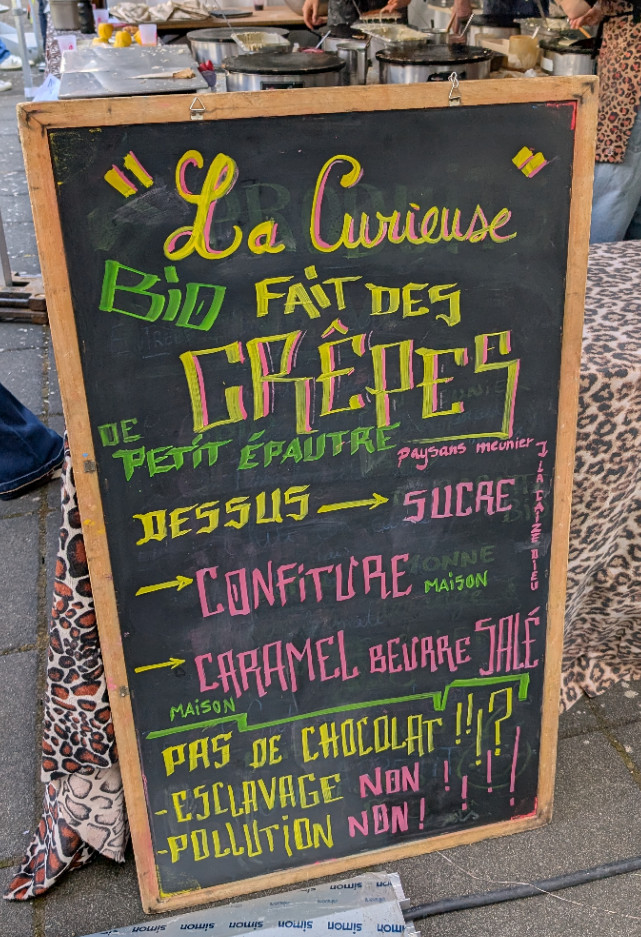 " La Curieuse "
BiO FAiT DES
CRÊPES
DE PETiT ÉPAUTRE
paysans meunier
LA CAIZE DIEU
DESSUS → SUCRE
→ CONFiTURE MAISON
→ CARAMEL BEURRE SALÉ
MAISON
PAS DE CHOCOLAT !!¡?
-ESCLAVAGE NON !
-POLLUTiON NON !
simon simon simon simon
simon simon simon